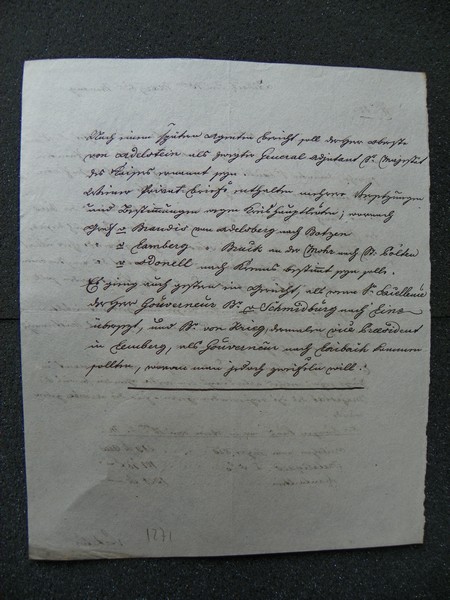 Nach einem späteren Agenten Bericht soll der Herr Oberste
von Adelstein als zweyter General Adjutant Sr. Majestät
des Kaisers ernannt seyn.
Wiener Privat Briefe enthalten mehrere Versetzungen
und Bestimmungen wegen Kreishauptleuten; wornach
Graf v Brandis von Adelsberg nach Botzen
" v Lamberg " Bruck an der Mohr nach St. Pölten
" v Odonell nach Krems bestimmt seyn solle.
Es ging auch gestern ein Gerücht, als wenn Sr. Excellence
der Herr Gouverneur Br. v Schmidburg nach Linz
übersezt, und Hr. von Krieg, dermalen Vice Praesident
in Lemberg, als Gouverneur nach Laibach kommen
sollten, woran man jedoch zweifeln will.